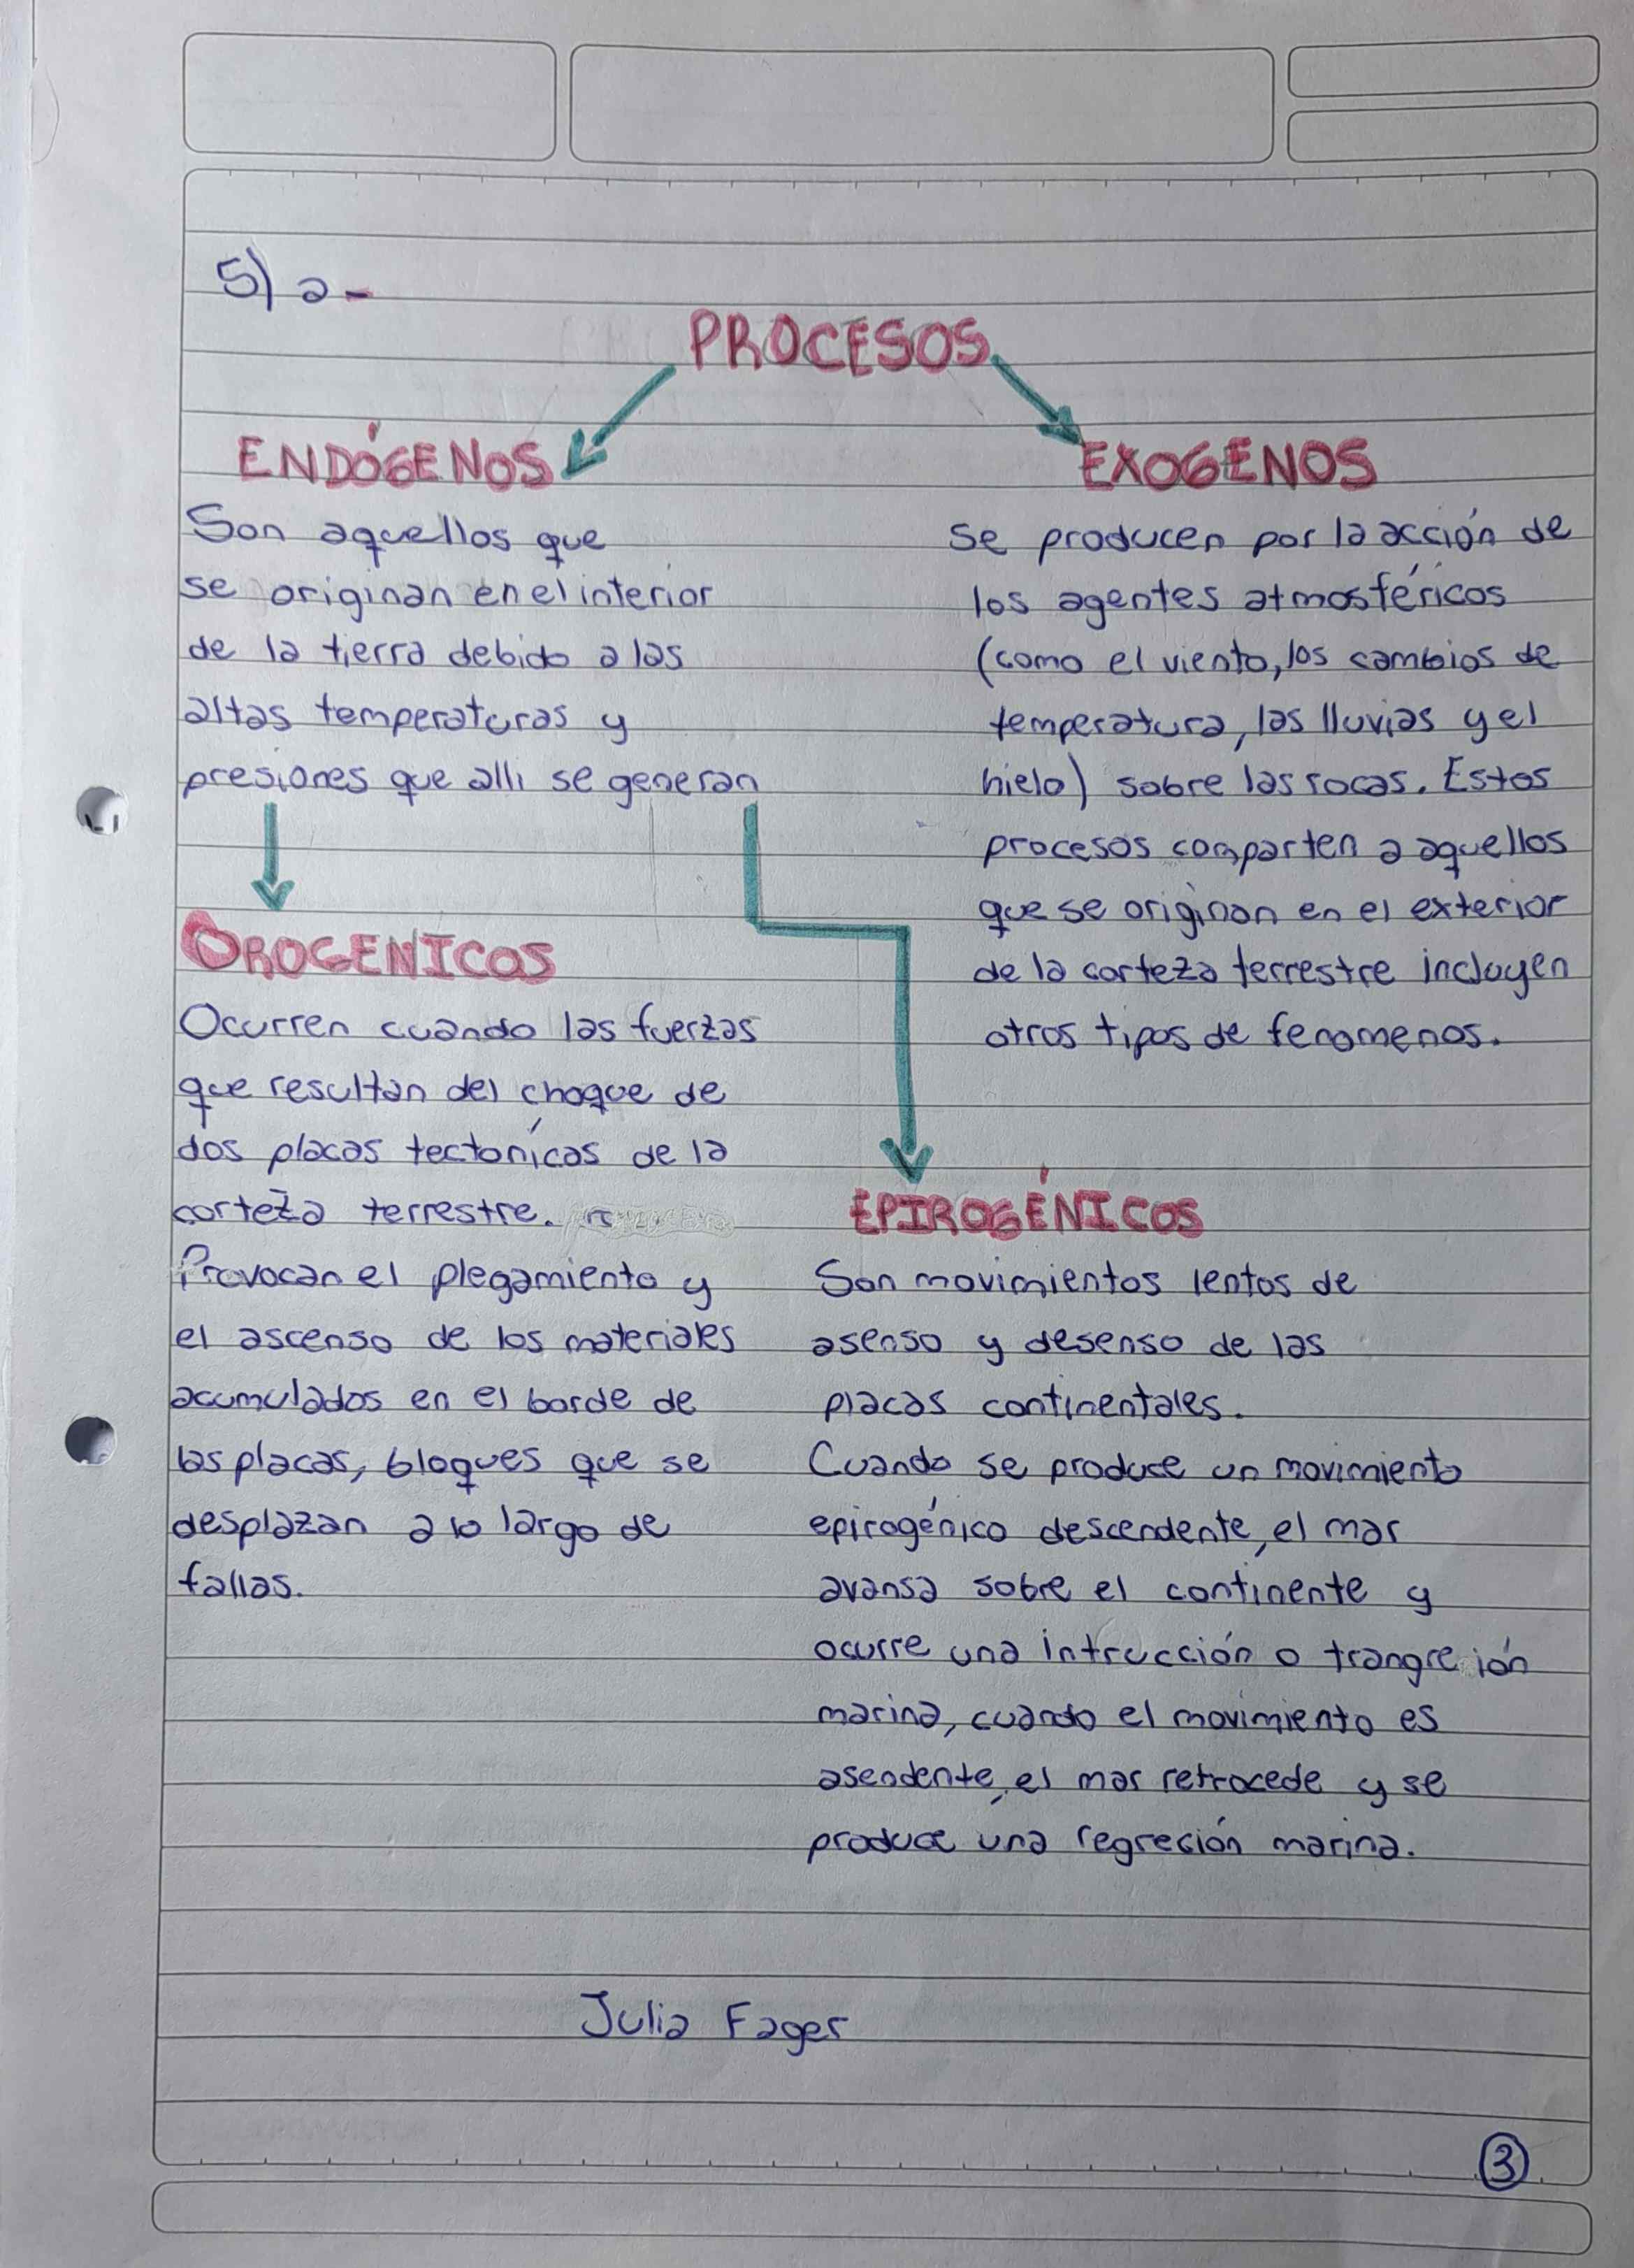 5) a-
PROCESOS
ENDÓGENOS
Son aquellos que
se originan en el interior
de la tierra debido a las
altas temperaturas y
presiones que alli se generan
EXOGENOS
se producen por la acción de
los agentes atmosféricos
(como el viento, los cambios de
temperatura, las lluvias y el
hielo) sobre las rocas. Estos
procesos comparten a aquellos
que se originan en el exterior
de la corteza terrestre incluyen
otros tipos de fenomenos.
OROGENICOS
Ocurren cuando las fuerzas
que resultan del choque de
dos placas tectonícas de la
corteza terrestre.
Provocan el plegamiento y
el ascenso de los materiales
acumulados en el borde de
las placas, bloques que se
desplazan a lo largo de
fallas.
EPIROGÉNICOS
Son movimientos lentos de
asenso y desenso de las
placas continentales.
Cuando se produce un movimiento
epirogénico descendente, el mar
avansa sobre el continente y
ocurre una intrucción o trangre ión
marina, cuando el movimiento es
asendente, el mar retrocede y se
produce una regreción marina.
Julia Fager
3